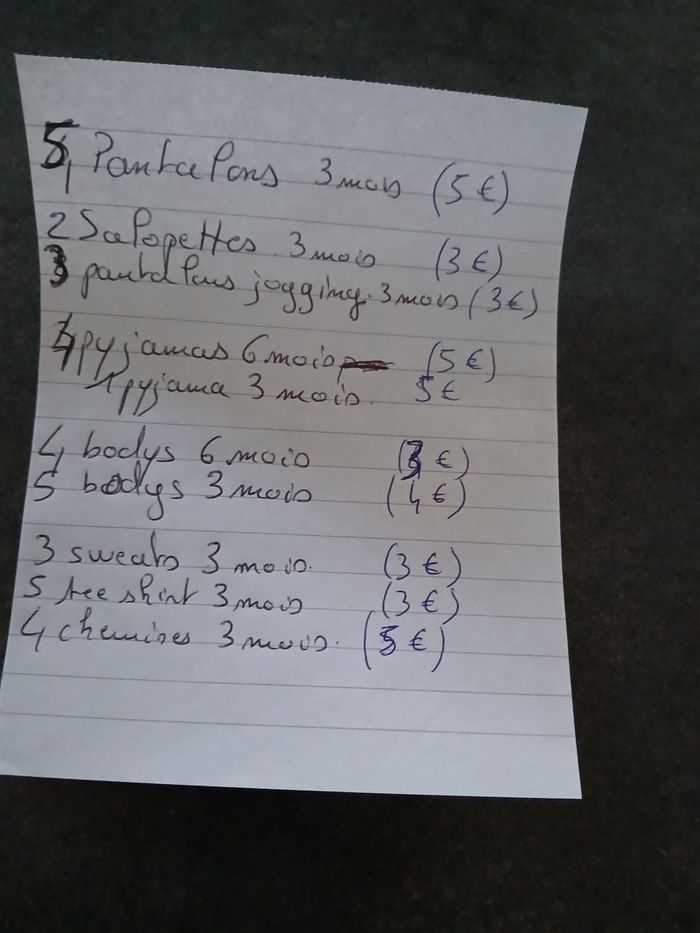 5 Pantalons 3 mois (5 €)
2 Salopettes. 3 mois (3 €)
3 pantalons jogging. 3 mois (3€)
4 pyjamas 6 mois (5 €)
1 pyjama 3 mois. 5 €
4 bodys 6 mois (3 €)
5 bodys 3 mois (4 €)
3 sweats 3 mois. (3 €)
5 tee shirt 3 mois (3 €)
4 chemises 3 mois. (5 €)